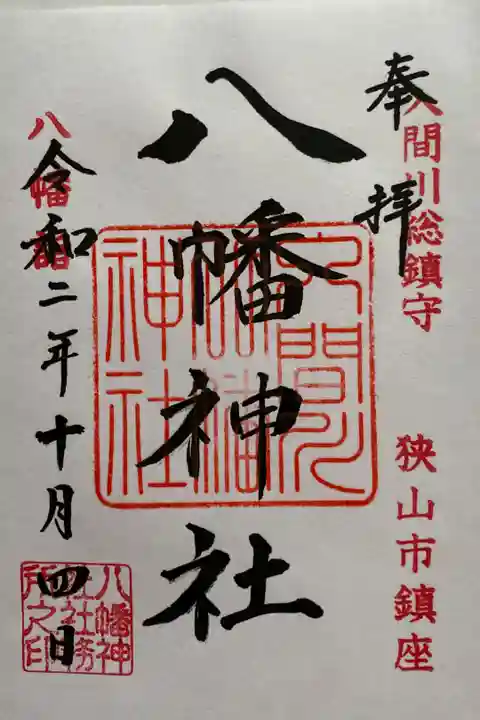 奉拝
入間川総鎮守
狭山市鎮座
八幡神社
入間川
神社
令和二年十月四日
八幡
八幡神
社社務
所之印